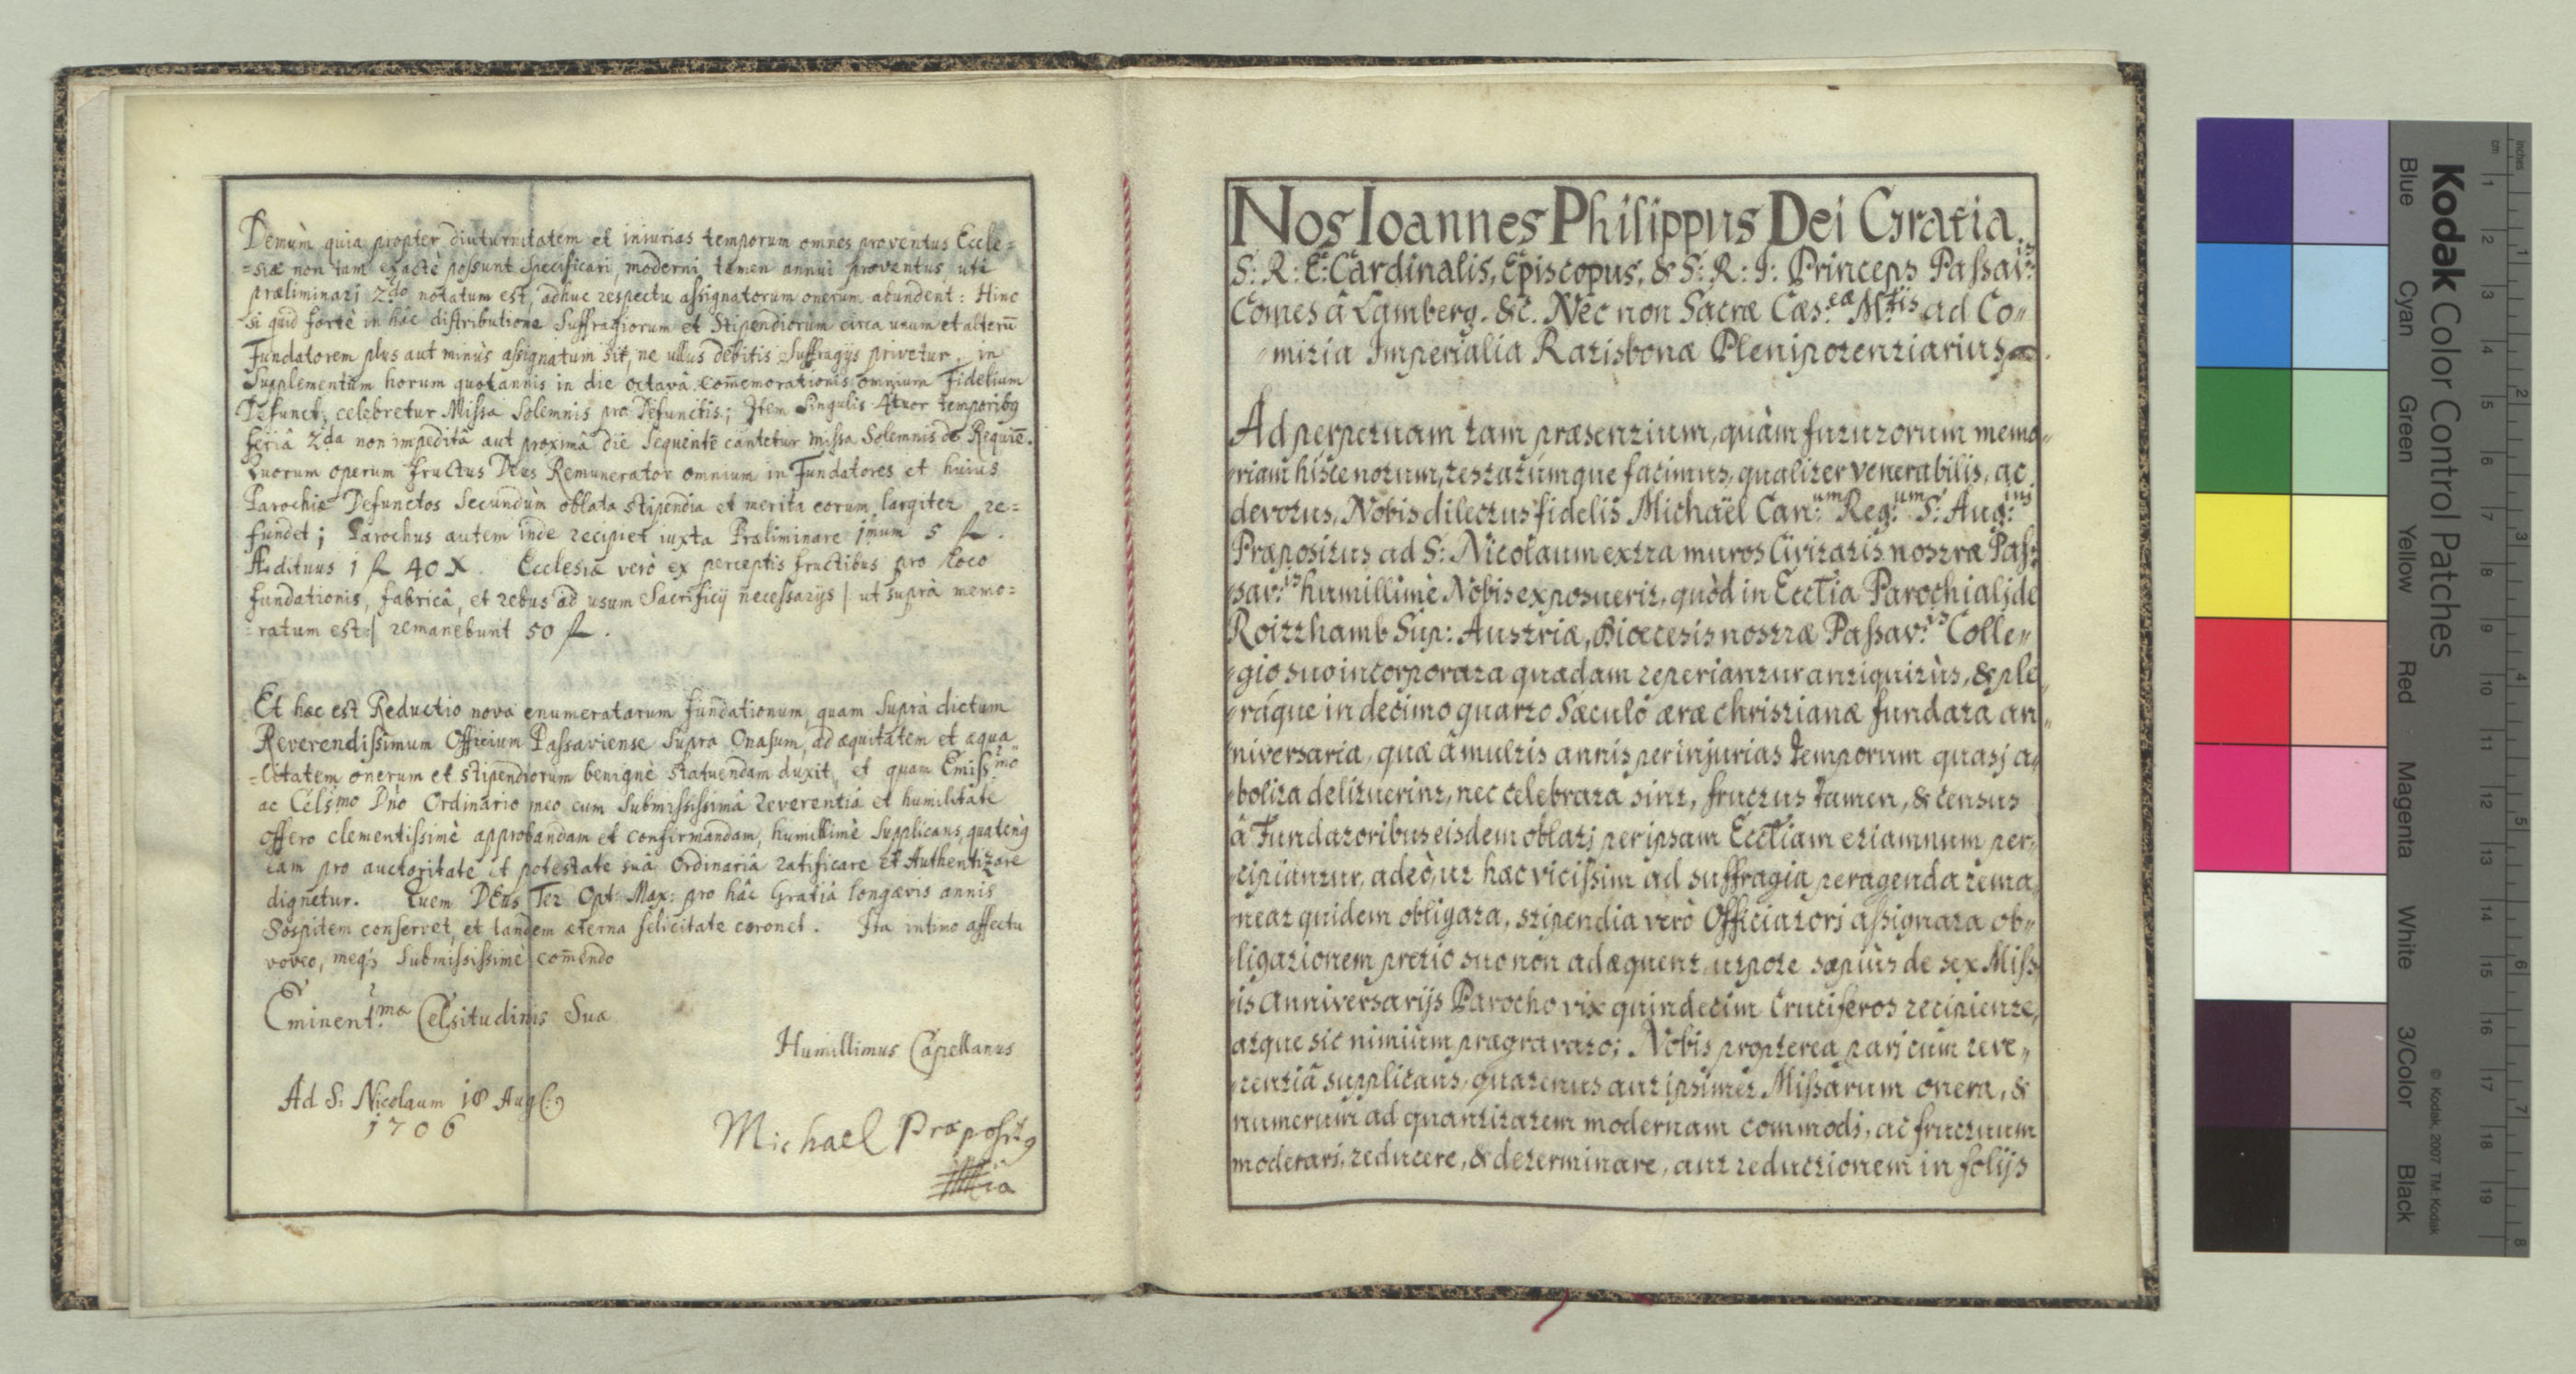 Demùm quia propter diuturnitatem et iniurias temporum omnes proventus Eccle=
=siæ non tam exactè possunt specificari, moderni tamen annui proventus uti
præliminari 2do notatum est, adhuc respectu assignatorum onerum abundent: Hinc
si quid fortè in hâc distributione Suffragiorum et Stipendiorum circa unum et alterū
Fundatorem plus aut minùs assignatum sit, ne ullus debitis Suffragijs privetur, in
Supplementum horum quotannis in die octavâ Com̄emorationis omnium Fidelium
Defunct: celebretur Missa Solemnis pro Defunctis; Item Singulis 4tuor temporibꝰ
feriâ 2da non impeditâ aut proximâ die Sequente cantetur missa Solemnis de Requiē.
Quorum operum fructus Deus Remunerator omnium in Fundatores et huius
Parochiæ Defunctos Secundùm oblata stipendia et merita eorum largiter re=
fundet; Parochus autem inde recipiet iuxta Præliminare 1mum 5 fl.
Ædituus 1 fl 40 X. Ecclesia verò ex perceptis fructibus pro Loco
fundationis, fabricâ, et rebus ad usum Sacrificij necessarijs | ut suprà memo=
=ratum est | remanebunt 50 fl.
Et hæc est Reductio nova enumeratarum fundationum, quam Suprà dictum
Reverendissimum Officium Passaviense Supra Onasum, ad æquitatem et æqua
=litatem onerum et stipendiorum benignè statuendam duxit, et quam Emissmo
ac Celsmo Dn̄o Ordinario meo cum Submississimâ Reverentiâ et humilitate
offero clementissimè approbandam et confirmandam, humillimè Supplicans, quatenꝰ
eam pro auctoritate et potestate suâ Ordinariâ ratificare et Authentizare
dignetur. Quem DEus Ter Opt: Max: pro hâc Gratiâ longævis annis
Sospitem conservet, et tandem æterna felicitate coronet. Ita intimo affectu
voveo, meq; Submississime com̄endo
Eminent:mæ Celsitudinis Suæ
Humillimus Capellanus
Ad S: Nicolaum 18 Aug(:)
1706
Michael Præpositꝰ
Nos Ioannes Philippus Dei Gratia
S: R: E: Cardinalis, Episcopus, & S: R: I: Princeps Passav:is
Comes â Lamberg. &c. Nec non Sacræ Cæs:eæ M:tis ad Co„
„mitia Imperialia Ratisbonæ Plenipotentiarius.
Ad perpetuam tam præsentium, quàm futurorum memo„
„riam hisce notum, testatúmque facimus, qualiter venerabilis, ac
devotus, Nobis dilectus fidelis Michaël Can:um Reg:um S: Aug:ini
Præpositus ad S: Nicolaum extra muros Civitatis nostræ Pas„
„sav:is humillimè Nobis exposuerit, quòd in Ecctia Parochiali de
Roitthamb Sup: Austriæ, Diœcesis nostræ Passav:is Colle„
„gio suo incorporata quædam reperiantur antiquitùs, & ple„
„ráque in decimo quarto Sæculô æræ christianæ fundata an„
„niversaria, quæ â multis annis per injurias temporum quasj a„
„bolita delituerint, nec celebrata sint, fructus tamen, & census
â Fundatoribus eisdem oblatj per ipsam Ecctiam etiamnum per„
„cipiantur, adeò, ut hæc vicissim ad suffragia peragenda rema„
„neat quidem obligata, stipendia verò Officiatorj assignata ob„
„ligationem pretio suo non adæquent, utpote sæpiùs de sex Miss„
„is anniversarijs Parocho vix quindecim Cruciferos recipiente,
atque sic nimiùm prægravato; Nobis propterea parj cum reve„
„rentiâ supplicans, quatenus aut ipsimet Missarum onera, &
numerum ad quantitatem modernam commodi, ac fructuum
moderari, reducere, & determinare, aut reductionem in folijs
Kodak Color Control Patches
Blue Cyan Green Yellow Red Magenta White 3/Color Black
© Kodak, 2007 TM: Kodak
inches 1 2 3 4 5 6 7 8
cm 1 2 3 4 5 6 7 8 9 10 11 12 13 14 15 16 17 18 19